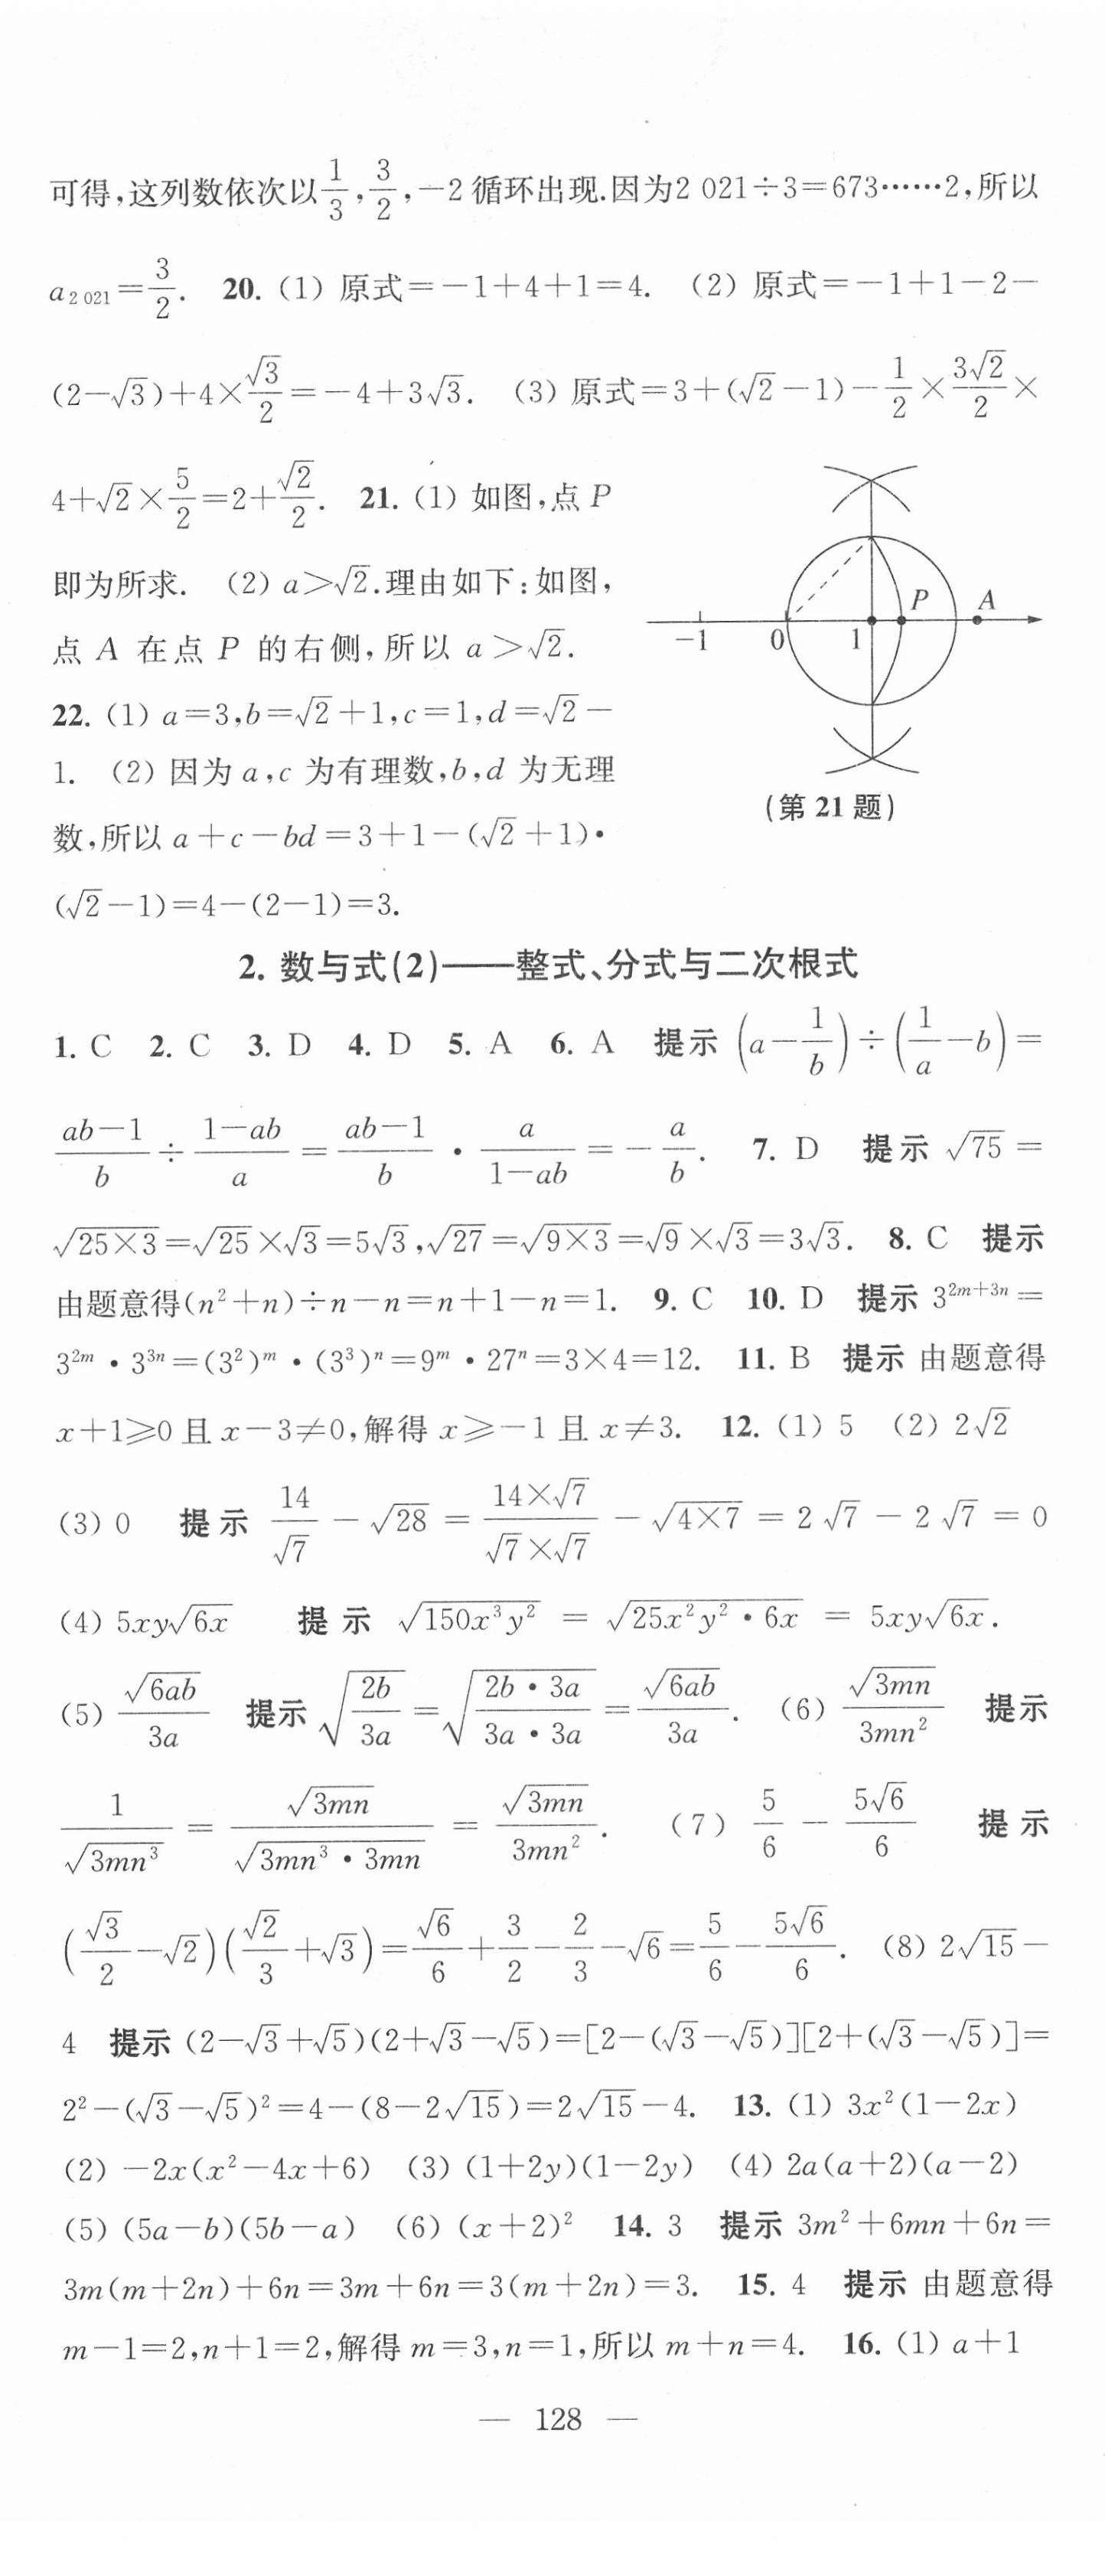 可得,这列数依次以1/3,3/2,-2循环出现.因为2 021÷3=673……2,所以
a₂ ₀₂₁=3/2. 20. (1) 原式=-1+4+1=4. (2) 原式=-1+1-2-
(2-√3)+4×√3/2=-4+3√3. (3) 原式=3+(√2-1)-1/2×3√2/2×
4+√2×5/2=2+√2/2. 21. (1) 如图,点 P
即为所求. (2) a>√2.理由如下:如图,
点 A 在点 P 的右侧,所以 a>√2.
22. (1) a=3,b=√2+1,c=1,d=√2-
1. (2) 因为 a,c 为有理数,b,d 为无理
数,所以 a+c-bd=3+1-(√2+1)•
(√2-1)=4-(2-1)=3.
P A
-1 0 1
(第 21 题)
2. 数与式(2)——整式、分式与二次根式
1. C 2. C 3. D 4. D 5. A 6. A 提示 (a-1/b)÷(1/a-b)=
(ab-1)/b÷(1-ab)/a=(ab-1)/b•a/(1-ab)=-a/b. 7. D 提示 √75=
√(25×3)=√25×√3=5√3,√27=√(9×3)=√9×√3=3√3. 8. C 提示
由题意得(n²+n)÷n-n=n+1-n=1. 9. C 10. D 提示 3²ᵐ⁺³ⁿ=
3²ᵐ•3³ⁿ=(3²)ᵐ•(3³)ⁿ=9ᵐ•27ⁿ=3×4=12. 11. B 提示 由题意得
x+1≥0 且 x-3≠0,解得 x≥-1 且 x≠3. 12. (1) 5 (2) 2√2
(3) 0 提示 14/√7-√28=(14×√7)/(√7×√7)-√(4×7)=2√7-2√7=0
(4) 5xy√(6x) 提示 √(150x³y²)=√(25x²y²•6x)=5xy√(6x).
(5) √(6ab)/3a 提示 √(2b/3a)=√((2b•3a)/(3a•3a))=√(6ab)/3a. (6) √(3mn)/3mn² 提示
1/√(3mn³)=√(3mn)/√(3mn³•3mn)=√(3mn)/3mn². (7) 5/6-5√6/6 提示
(√3/2-√2)(√2/3+√3)=√6/6+3/2-2/3-√6=5/6-5√6/6. (8) 2√15-
4 提示 (2-√3+√5)(2+√3-√5)=[2-(√3-√5)][2+(√3-√5)]=
2²-(√3-√5)²=4-(8-2√15)=2√15-4. 13. (1) 3x²(1-2x)
(2) -2x(x²-4x+6) (3) (1+2y)(1-2y) (4) 2a(a+2)(a-2)
(5) (5a-b)(5b-a) (6) (x+2)² 14. 3 提示 3m²+6mn+6n=
3m(m+2n)+6n=3m+6n=3(m+2n)=3. 15. 4 提示 由题意得
m-1=2,n+1=2,解得 m=3,n=1,所以 m+n=4. 16. (1) a+1
— 128 —